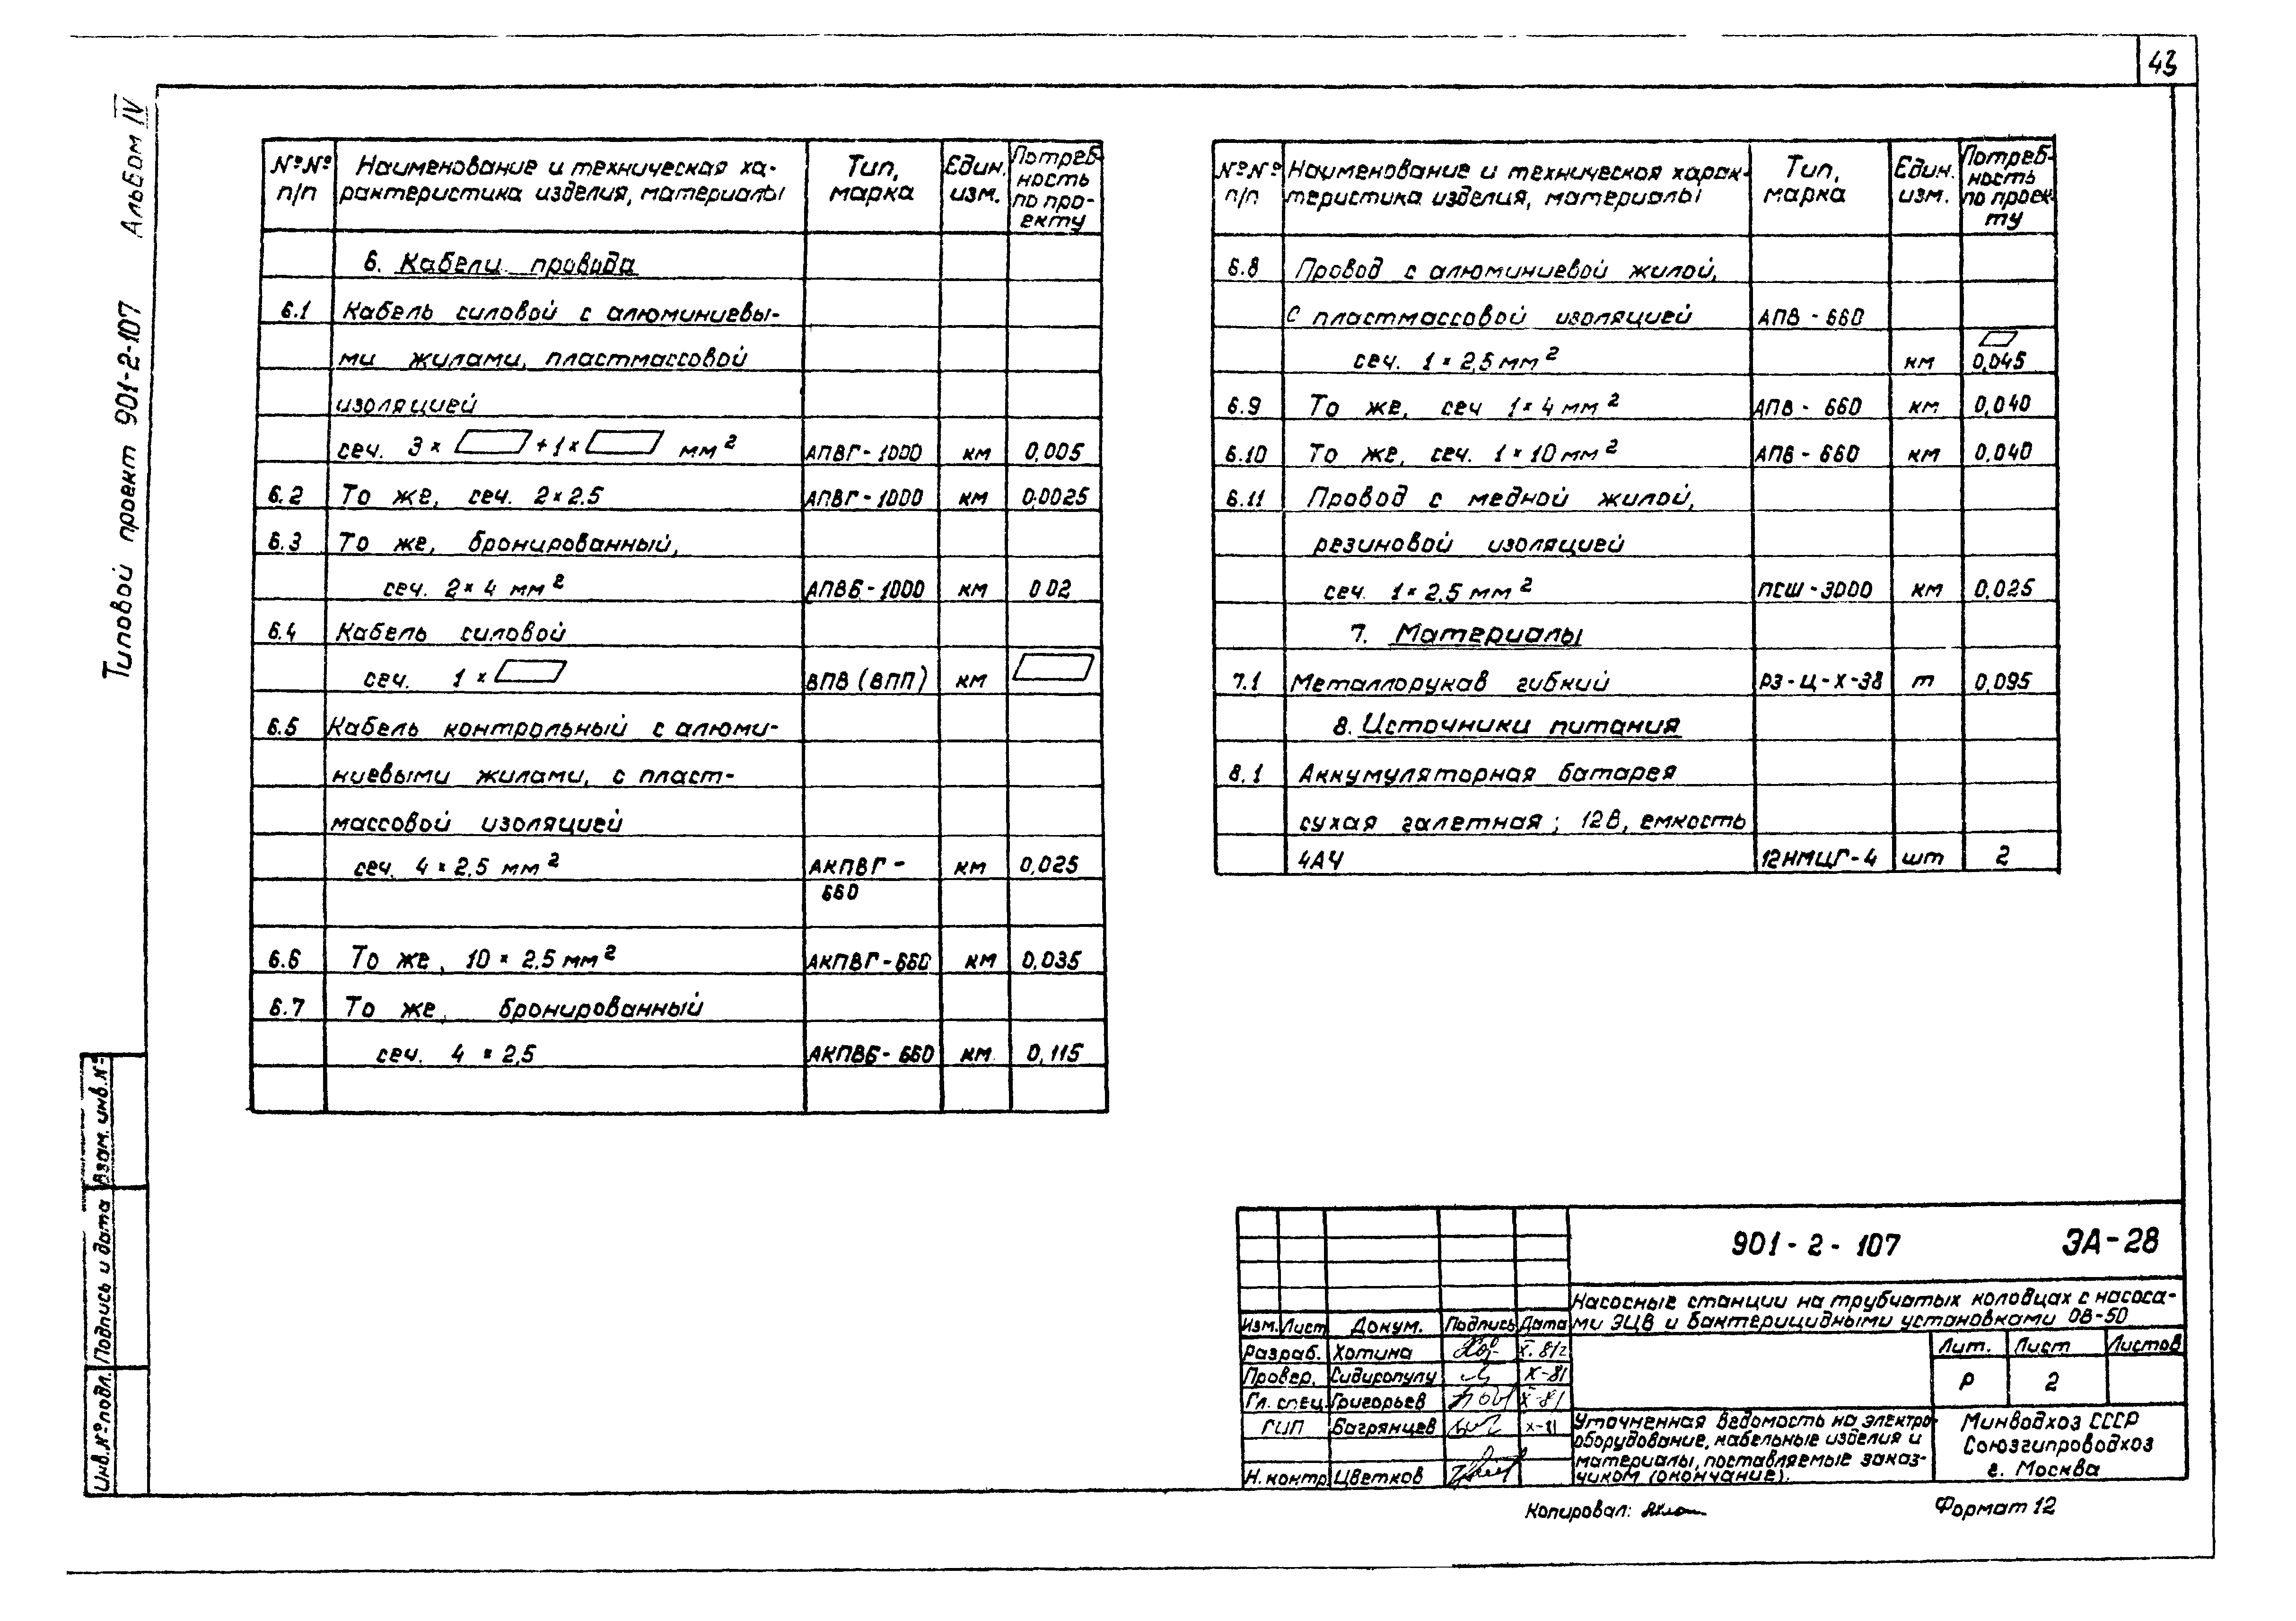 43
Типовой проект 901-2-107 Альбом IV
№№ п/п
Наименование и техническая ха-
рактеристика изделия, материалы
Тип, марка
Един. изм.
Потреб-
ность
по про-
екту
6. Кабели провода
6.1 Кабель силовой с алюминиевы-
ми жилами, пластмассовой
изоляцией
сеч. 3 × + 1 × мм² АПВГ-1000 км 0,005
6.2 То же, сеч. 2×2.5 АПВГ-1000 км 0,0025
6.3 То же, бронированный,
сеч. 2×4 мм² АПВБ-1000 км 0 02
6.4 Кабель силовой
сеч. 1 × ВПВ (ВПП) км
6.5 Кабель контрольный с алюми-
ниевыми жилами, с пласт-
массовой изоляцией
сеч. 4×2,5 мм² АКПВГ- км 0,025
660
6.6 То же, 10×2,5 мм² АКПВГ-660 км 0,035
6.7 То же, бронированный
сеч. 4 × 2,5 АКПВБ-660 км 0,115
№№ п/п
Наименование и техническая харак-
теристика изделия, материалы
Тип, марка
Един. изм.
Потреб-
ность
по проек-
ту
6.8 Провод с алюминиевой жилой,
с пластмассовой изоляцией АПВ-660
сеч. 1×2,5 мм² км 0,045
6.9 То же, сеч 1×4 мм² АПВ-660 км 0,040
6.10 То же, сеч. 1×10 мм² АПВ-660 км 0,040
6.11 Провод с медной жилой,
резиновой изоляцией
сеч. 1×2,5 мм² ПСШ-3000 км 0,025
7. Материалы
7.1 Металлорукав гибкий РЗ-Ц-Х-38 т 0,095
8. Источники питания
8.1 Аккумуляторная батарея
сухая галетная; 12В, емкость
4АЧ 12НМЦГ-4 шт 2
Взам. инв. №
Подпись и дата
Инв. № подл.
901-2-107 ЭА-28
Насосные станции на трубчатых колодцах с насоса-
ми ЭЦВ и бактерицидными установками ОВ-50
Изм. Лист Докум. Подпись Дата
Разраб. Хотина X. 81г
Провер. Сидиропулу X-81
Гл. спец. Григорьев X-81
ГИП Багрянцев
Н. контр. Цветков
Лит. Лист Листов
Р 2
Уточненная ведомость на электро-
оборудование, кабельные изделия и
материалы, поставляемые заказ-
чиком (окончание).
Минводхоз СССР
Союзгипроводхоз
г. Москва
Копировал:
Формат 12